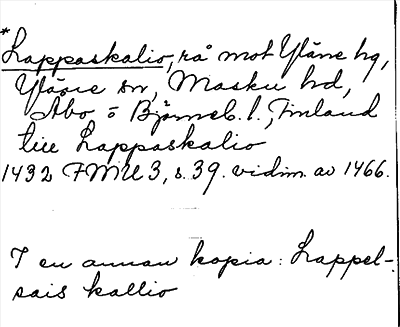 *Lappaskalio, rå mot Yläne hg,
Yläne sn, Masku hd,
Åbo o Björneb. l., Finland
till Lappaskalio
1432 FMU 3, s. 39. vidim. av 1466.
I en annan kopia: Lappel-
sais kallio